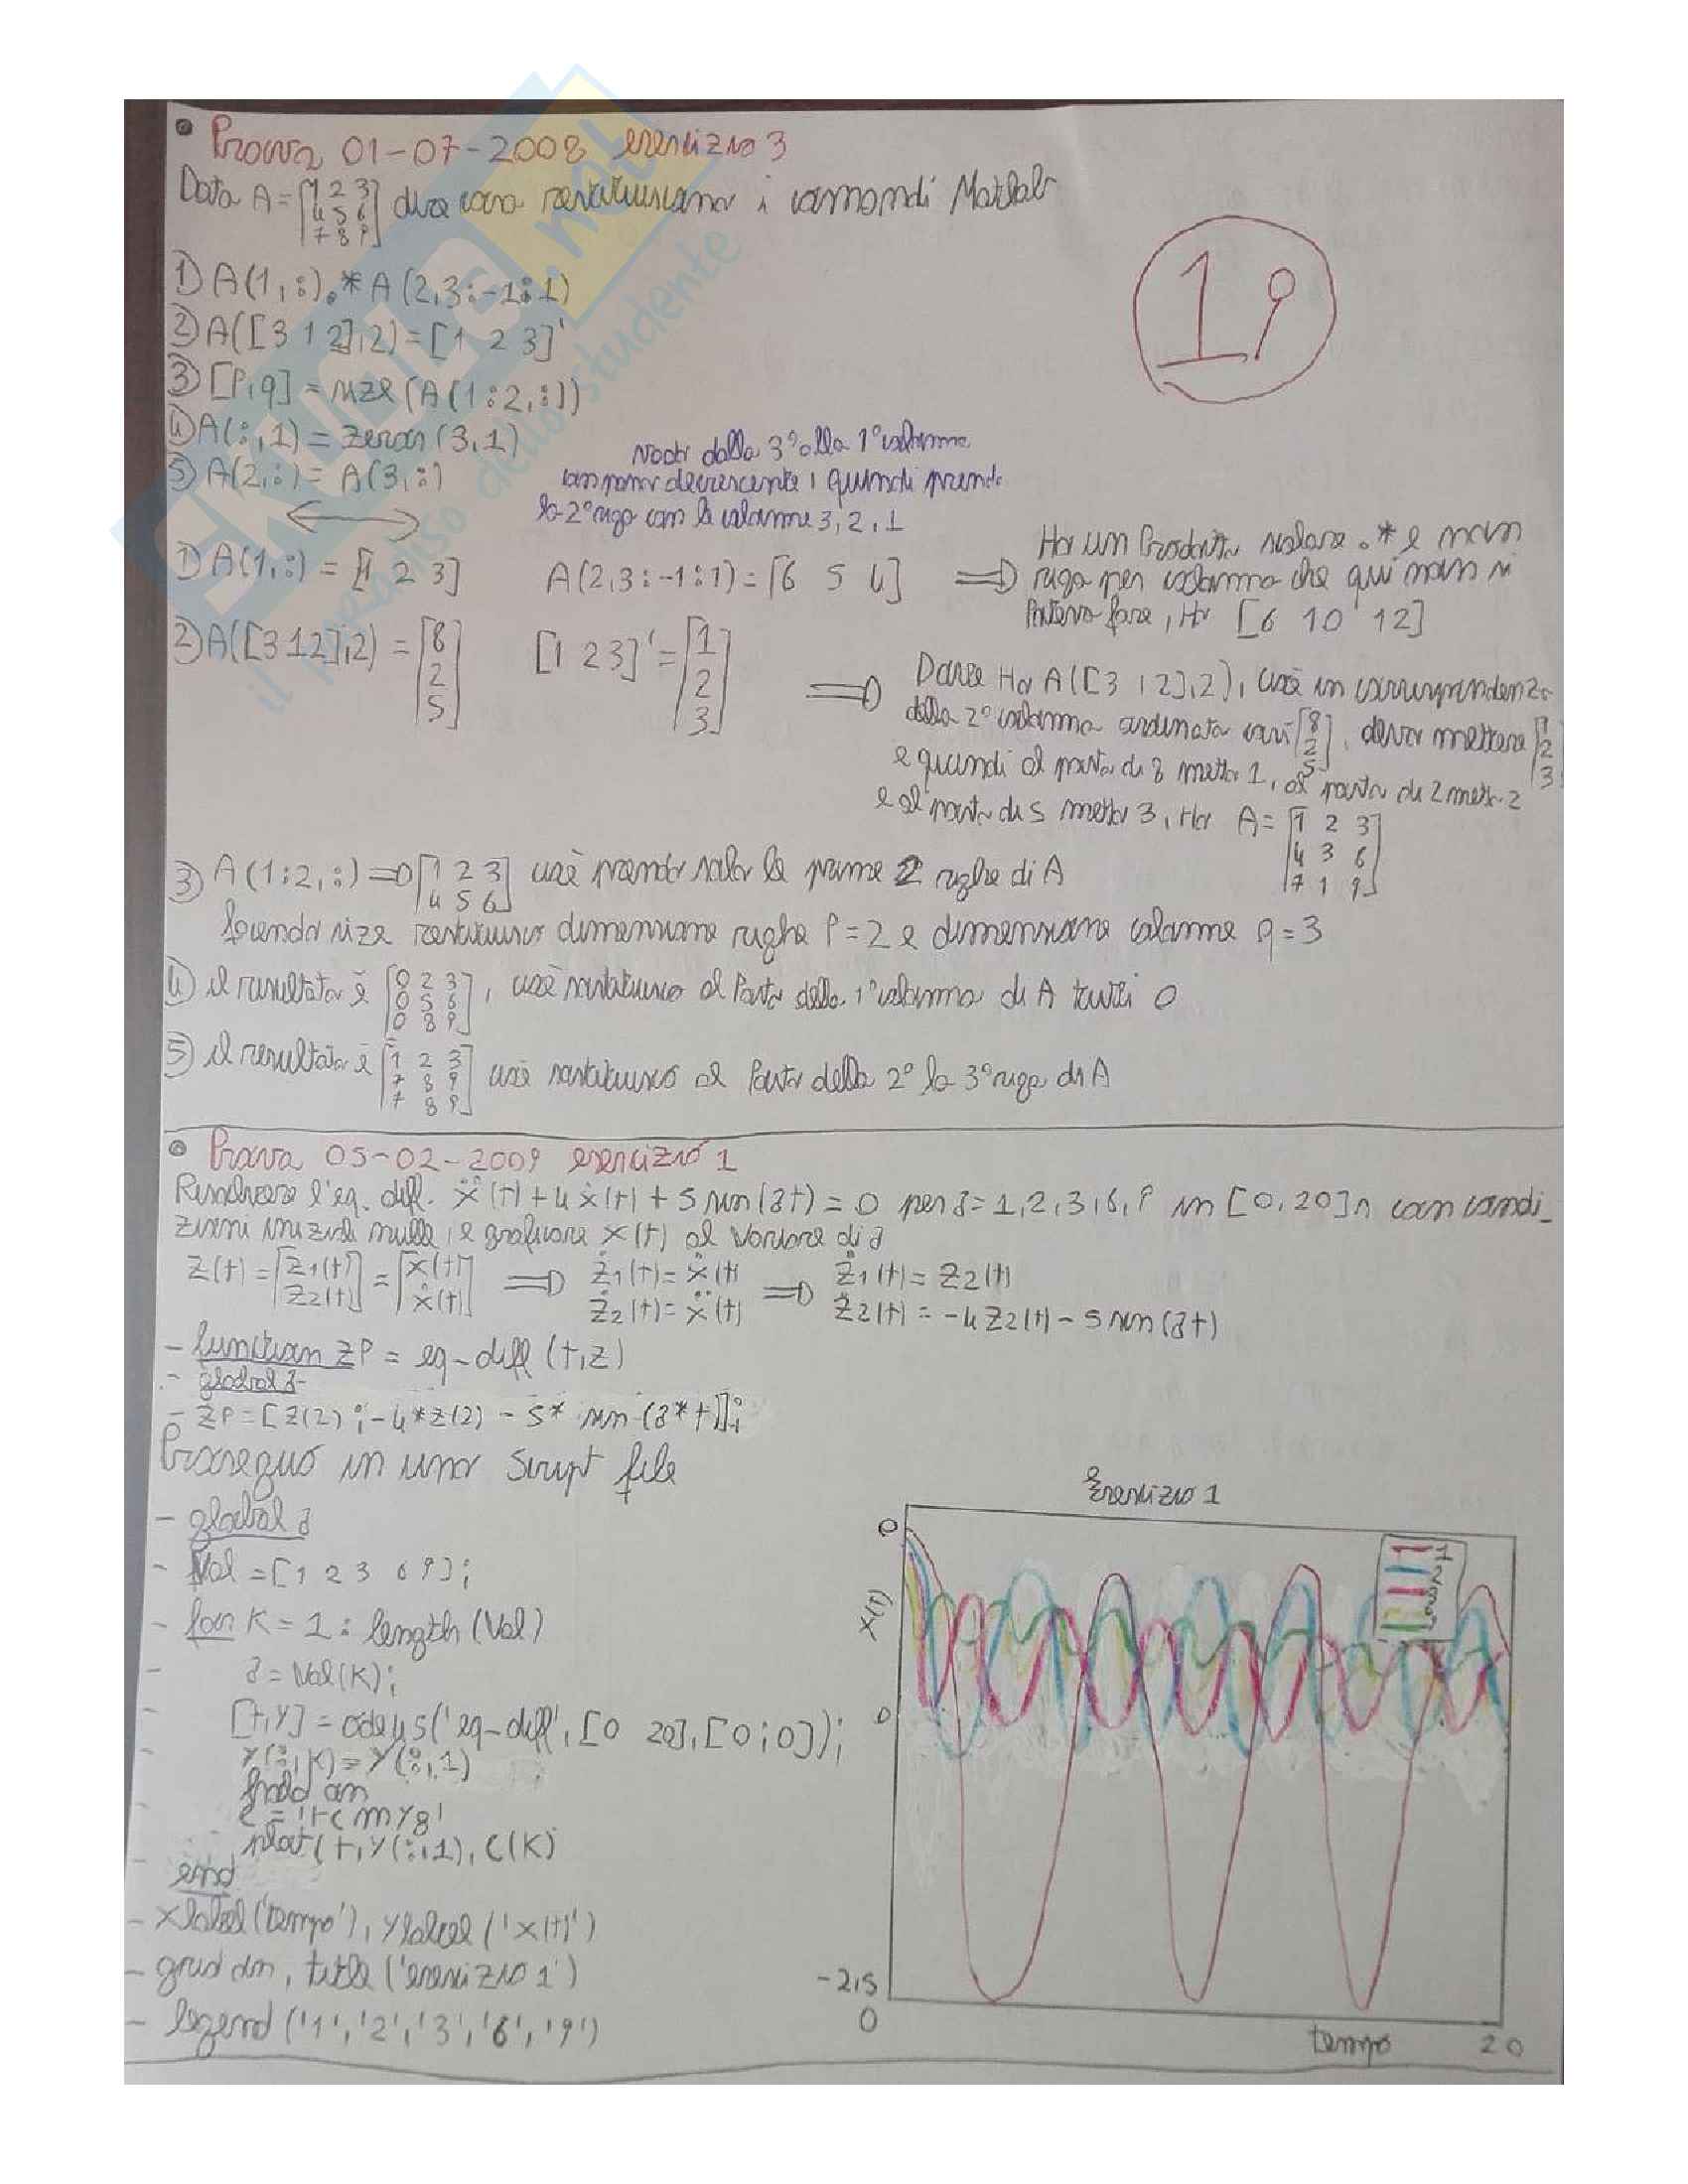 • Prova 01-07-2008 esercizio 3
Data A = [1 2 3
4 5 6
7 8 9] dire cosa restituiscono i comandi Matlab
1) A(1,:).*A(2,3:-1:1)
2) A([3 1 2],2)=[1 2 3]'
3) [P,q] = size(A(1:2,:))
4) A(:,1) = zeros(3,1)
5) A(2,:) = A(3,:)
1;
vado dalla 3° alla 1° colonna
con passo decrescente 1 quindi prendo
la 2° riga con le colonne 3, 2, 1
1) A(1,:) = [1 2 3] A(2,3:-1:1) = [6 5 4] ⇒ Ho un Prodotto scalare .* e non
riga per colonna che qui non si
Poteva fare, Ho [6 10 12]
2) A([3 1 2],2) = [8
2
5] [1 2 3]' = [1
2
3] ⇒ Dove Ho A([3 1 2],2), cioè in corrispondenza
della 2° colonna ordinata così [8
2
5], devo mettere [1
2
3]
e quindi al posto di 8 metto 1, al posto di 2 metto 2
e al posto di 5 metto 3, Ho A = [1 2 3
4 3 6
7 1 9]
3) A(1:2,:) ⇒ [1 2 3
4 5 6] cioè prendo solo le prime 2 righe di A
facendo size restituisco dimensione righe P=2 e dimensione colonne q=3
4) il risultato è [0 2 3
0 5 6
0 8 9], cioè sostituisco al Posto della 1° colonna di A tutti 0
5) il risultato è [1 2 3
7 8 9
7 8 9] cioè sostituisco al Posto della 2° la 3° riga di A
• Prova 05-02-2009 esercizio 1
Risolvere l'eq. diff. ẍ(t)+4ẋ(t)+5sin(at)=0 per a=1,2,3,6,9 in [0,20]s con condi_
zioni iniziali nulle, e graficare x(t) al variare di a
z(t) = [z1(t)
z2(t)] = [x(t)
ẋ(t)] ⇒ ż1(t) = ẋ(t)
ż2(t) = ẍ(t) ⇒ ż1(t) = z2(t)
ż2(t) = -4z2(t) - 5 sin(at)
- function zP = eq_diff(t,z)
- global a
- zP = [z(2);-4*z(2) - 5* sin(a*t)];
Proseguo in uno Script file
- global a
- Val = [1 2 3 6 9];
- for K = 1:length(Val)
- a = Val(K);
[t,Y] = ode45('eq_diff',[0 20],[0;0]);
- Y(:,K)=Y(:,1)
hold on
- c = 'rcmyg'
- plot(t,Y(:,1),C(K)
end
- xlabel('tempo'), ylabel('x(t)')
- grid on, title('esercizio 1')
- legend('1','2','3','6','9')
Esercizio 1
0
x(t)
0
-2,5
0
tempo
20
il paradiso dello studente